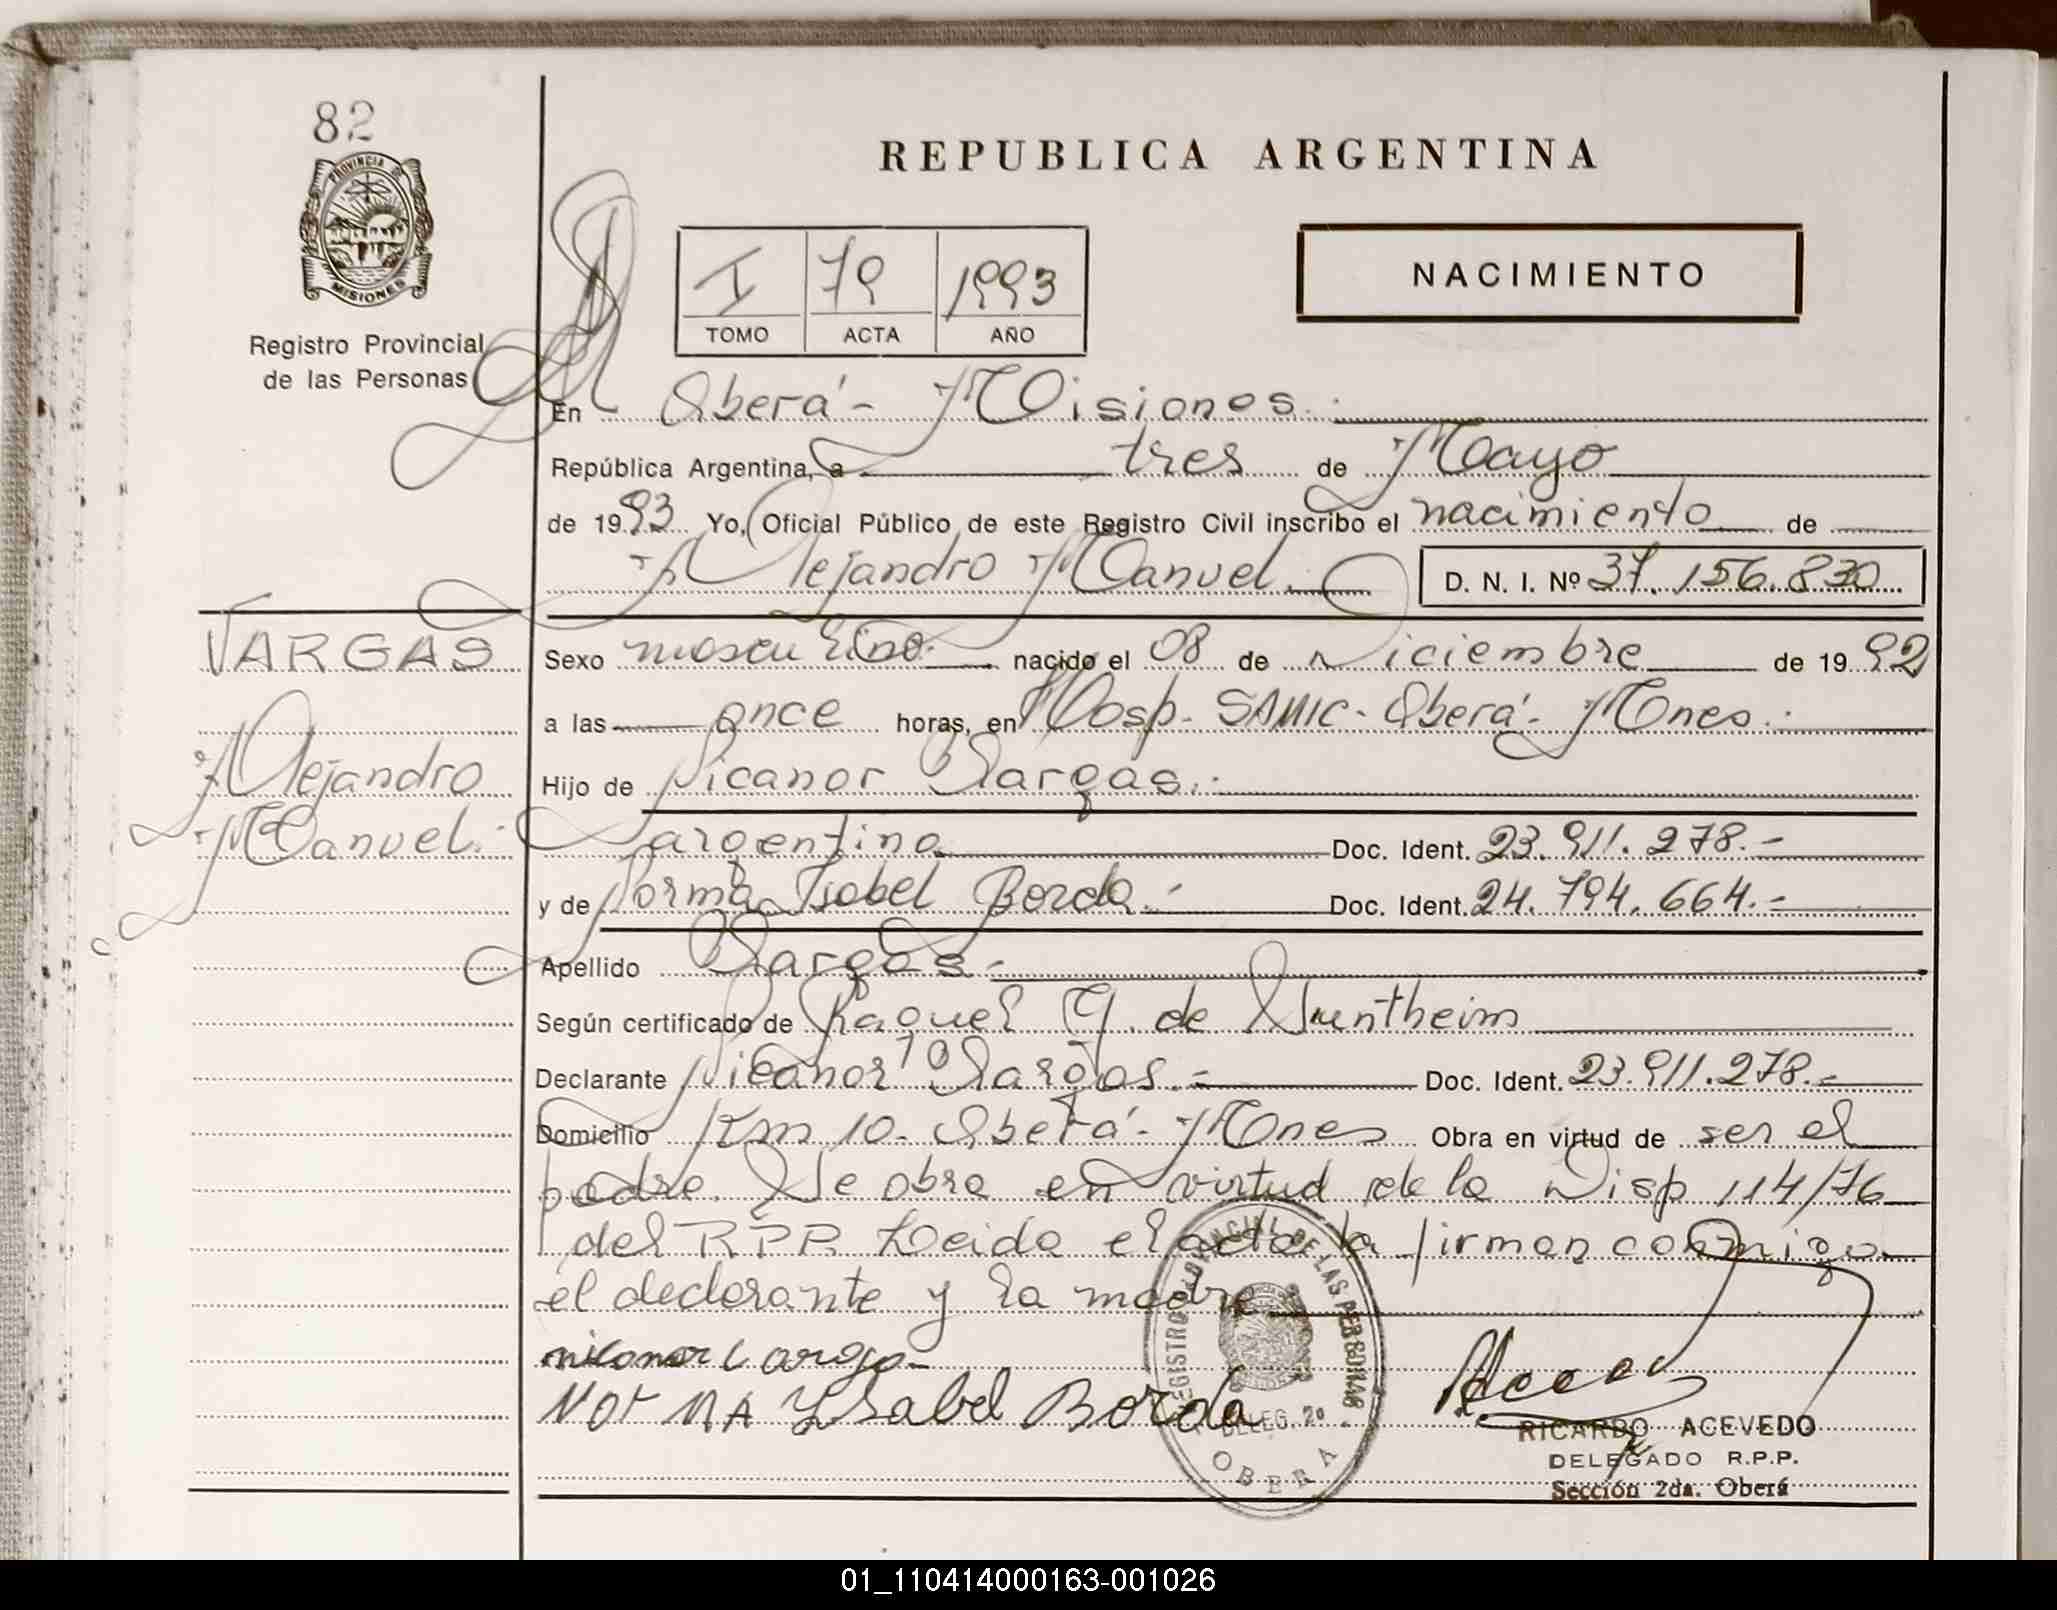 82
REPUBLICA ARGENTINA
PROVINCIA DE
MISIONES
Registro Provincial
de las Personas
I 79 1993
TOMO ACTA AÑO
NACIMIENTO
En Oberá - Misiones.
República Argentina, a tres de Mayo
de 1993 Yo, Oficial Público de este Registro Civil inscribo el nacimiento de
Alejandro Manuel. D. N. I. Nº 37.156.830
VARGAS
Alejandro
Manuel.
Sexo masculino. nacido el 08 de Diciembre de 1992
a las once horas, en Hosp. SAMIC - Oberá - Mnes.
Hijo de Nicanor Vargas.
argentino Doc. Ident. 23.911.278.-
y de Norma Isabel Borda.- Doc. Ident. 24.794.664.-
Apellido Vargas.-
Según certificado de Raquel G. de
Declarante Nicanor Vargas.- Doc. Ident. 23.911.278.-
Domicilio Km 10 - Oberá - Mnes Obra en virtud de ser el
padre. Se obra en virtud de la Disp 114/76
del RPP. Leida el acta la firman conmigo
el declarante y la madre
nicanor Vargas
NOrMA Isabel Borda
REGISTRO PROVINCIAL DE LAS PERSONAS
DELEG. 2º
OBERA
RICARDO ACEVEDO
DELEGADO R.P.P.
Sección 2da. Oberá
01_110414000163-001026